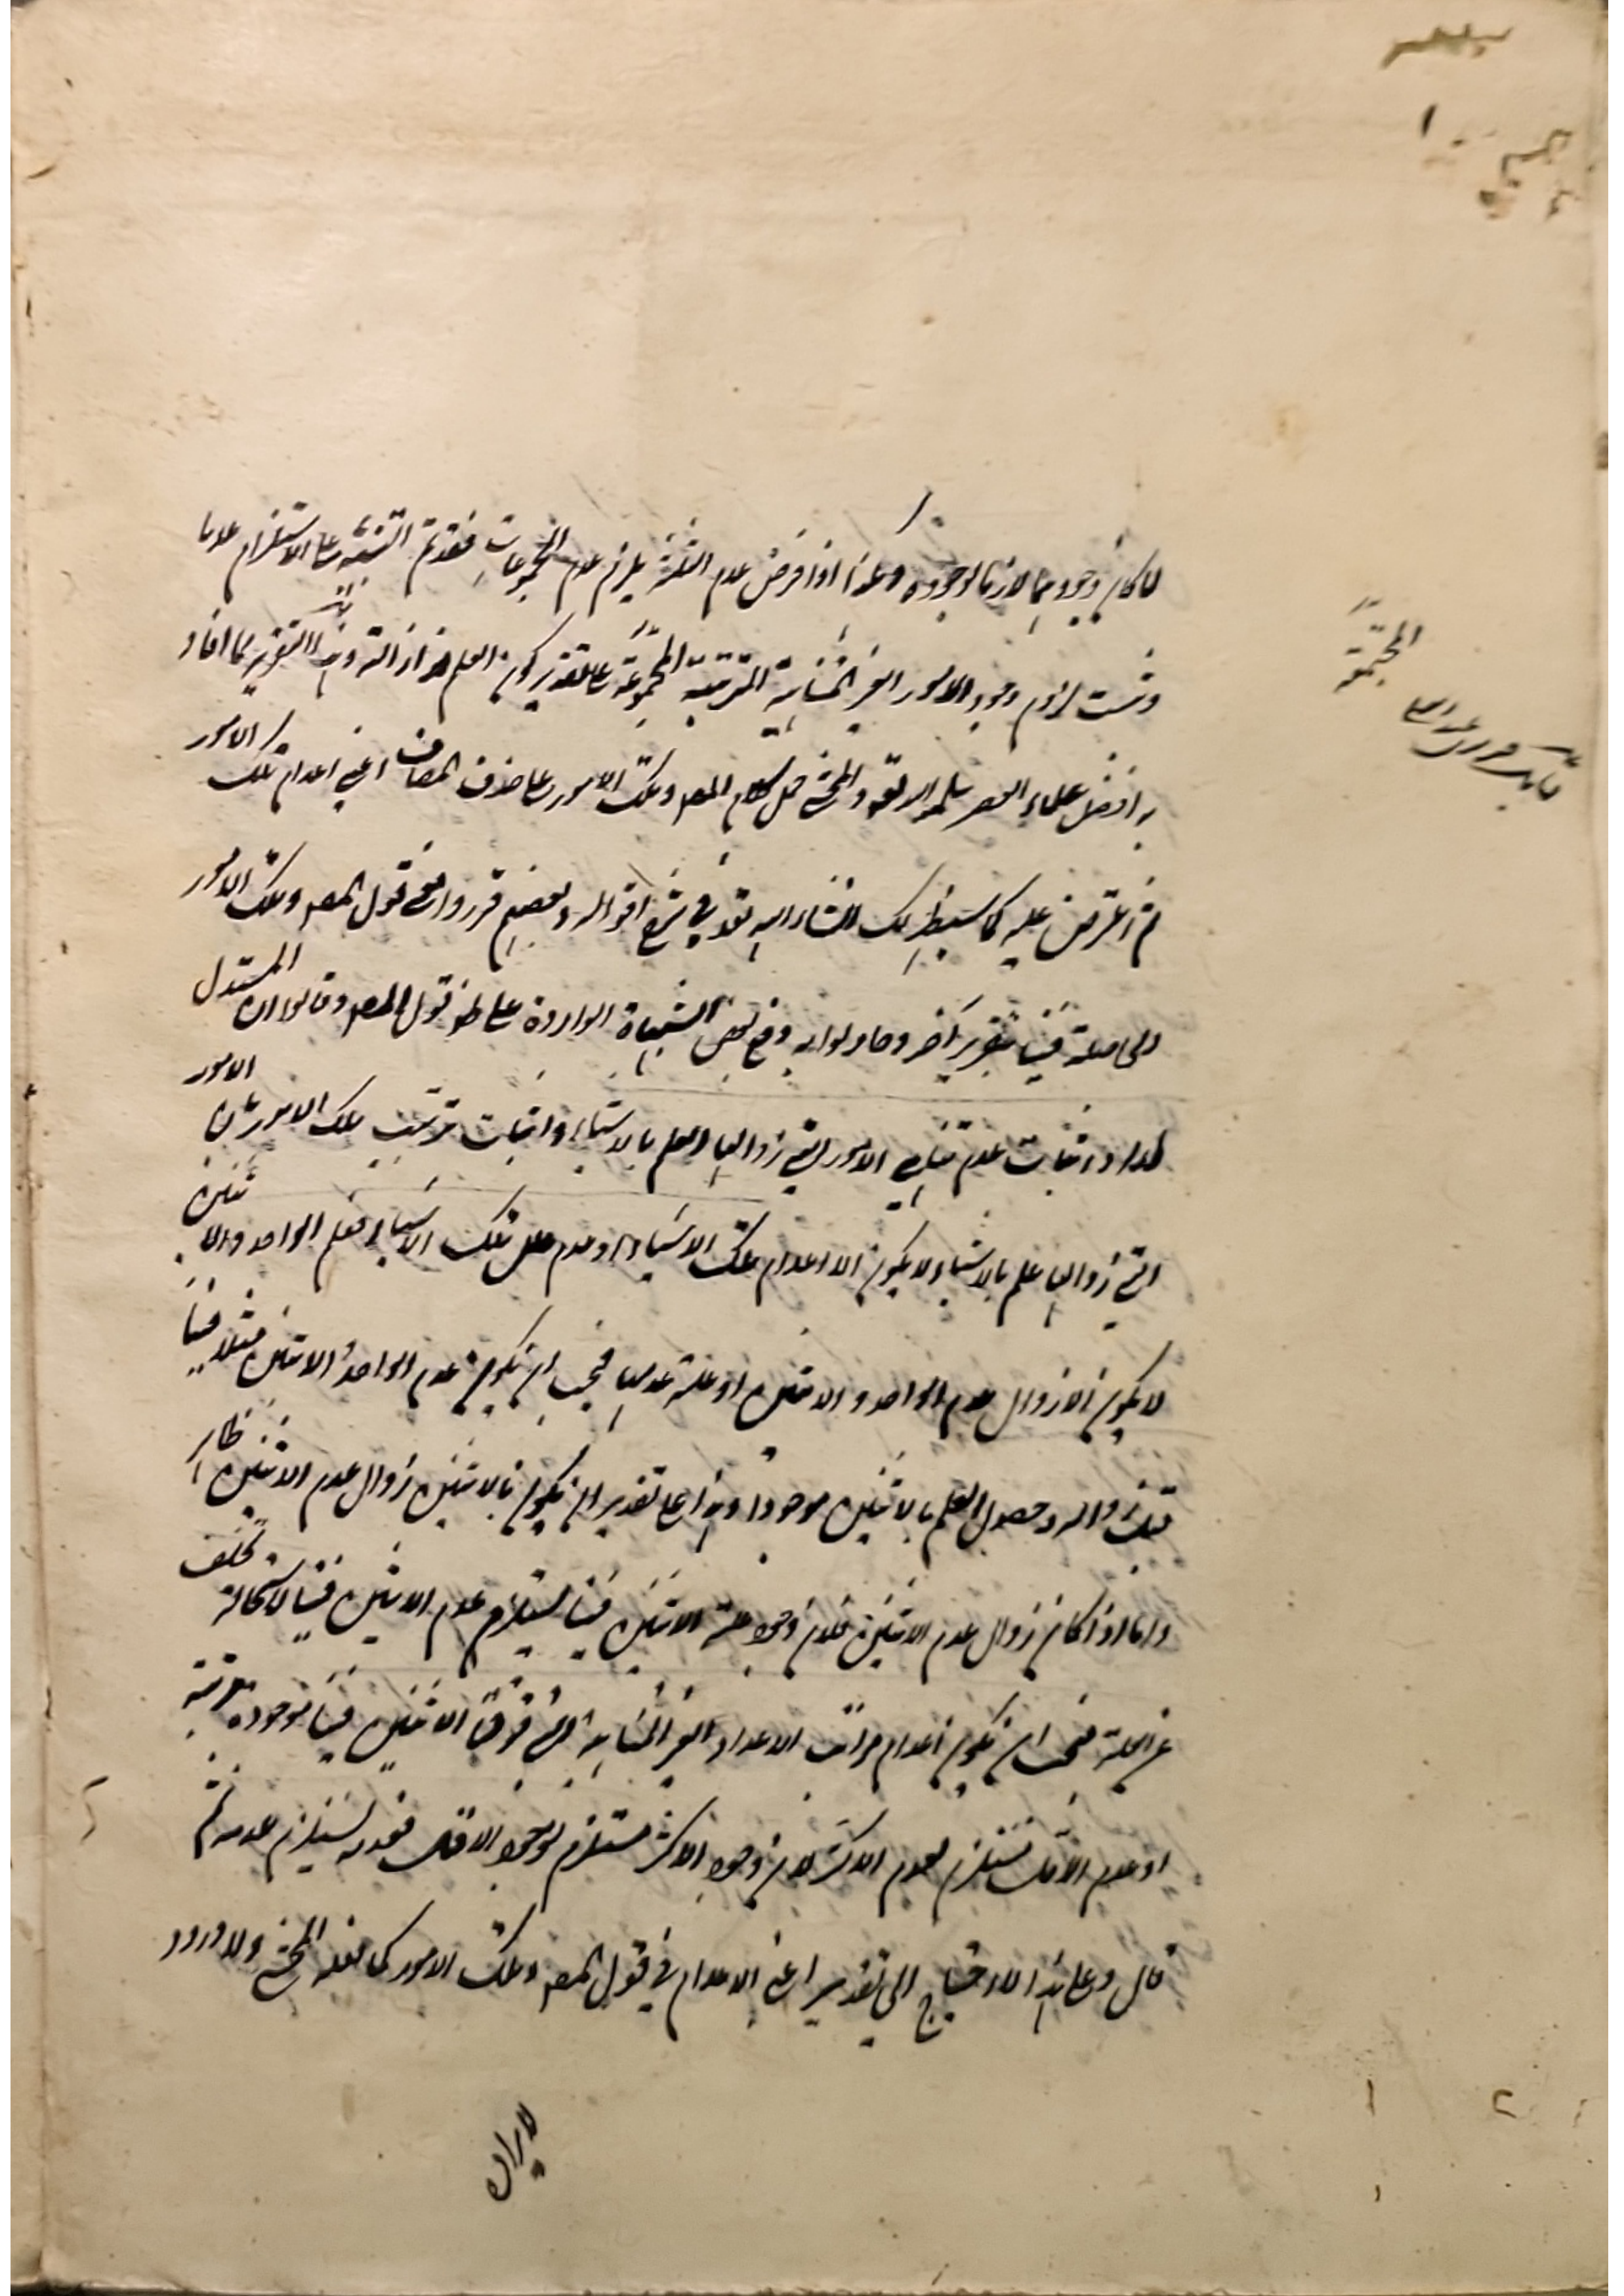 لما كان وجودهما لازما لوجوده وهكذا اذا فرض عدم الثلثة يلزم عدم المجموعات فقد تم التنبيه على الاستلزام عدما
وثبت لزوم وجود الامور الغير المتناهية المترتبة المجموعة على تقدير كون العلم هو ازالة وهذا التقرير مما افاد
به افضل علماء العصر سلمه الله تعالى والمحشي حمل كلام المصـ وتلك الامور على حذف المضاف اعني اعدام تلك الامور
ثم اعترض عليه كما سيظهر لك انشاء الله تعالى في شرح اقواله وبعضهم قرروا معنى قول المصـ وتلك الامور
الحاصلة فينا بتقرير آخر وحاولوا به دفع بعض الشبهات الواردة على ظاهر قول المصـ وقالوا ان المستدل
لما اراد اثبات عدم تناهي الامور التي زوالها العلم بالاشياء واثبات ترتيب تلك الامور بان الامور
التي زوالها علم بالاشياء لا يكون الا اعدام تلك الاشياء او عدم علل تلك الاشياء فعلم الواحد والاثنين
لا يكون الا زوال عدم الواحد والاثنين او علة عدمها فيجب ان يكون عدم الواحد والاثنين مثلا فينا
قبل زواله وحصول العلم بالاثنين موجودا وهذا على تقدير ان يكون بالاثنين زوال عدم الاثنين ظاهر
واما اذا كان زوال عدم الاثنين فلان وجود علة الاثنين فينا يستلزم عدم الاثنين فينا لاستحالة تخلف
عن العلة فيجب ان يكون اعدام مراتب الاعداد الغير المتناهية التي فوق الاثنين فينا موجودة مترتبة
اذ عدم الاقل مستلزم لعدم الاكثر لان وجود الاكثر مستلزم لوجود الاقل فعدمه يستلزم عدمه ثم
قال وعلى هذا لا احتياج الى تقدير اعني الاعدام في قول المصـ وتلك الامور كما فعله المحشي ولا ورود
لايراد
المجتمعة